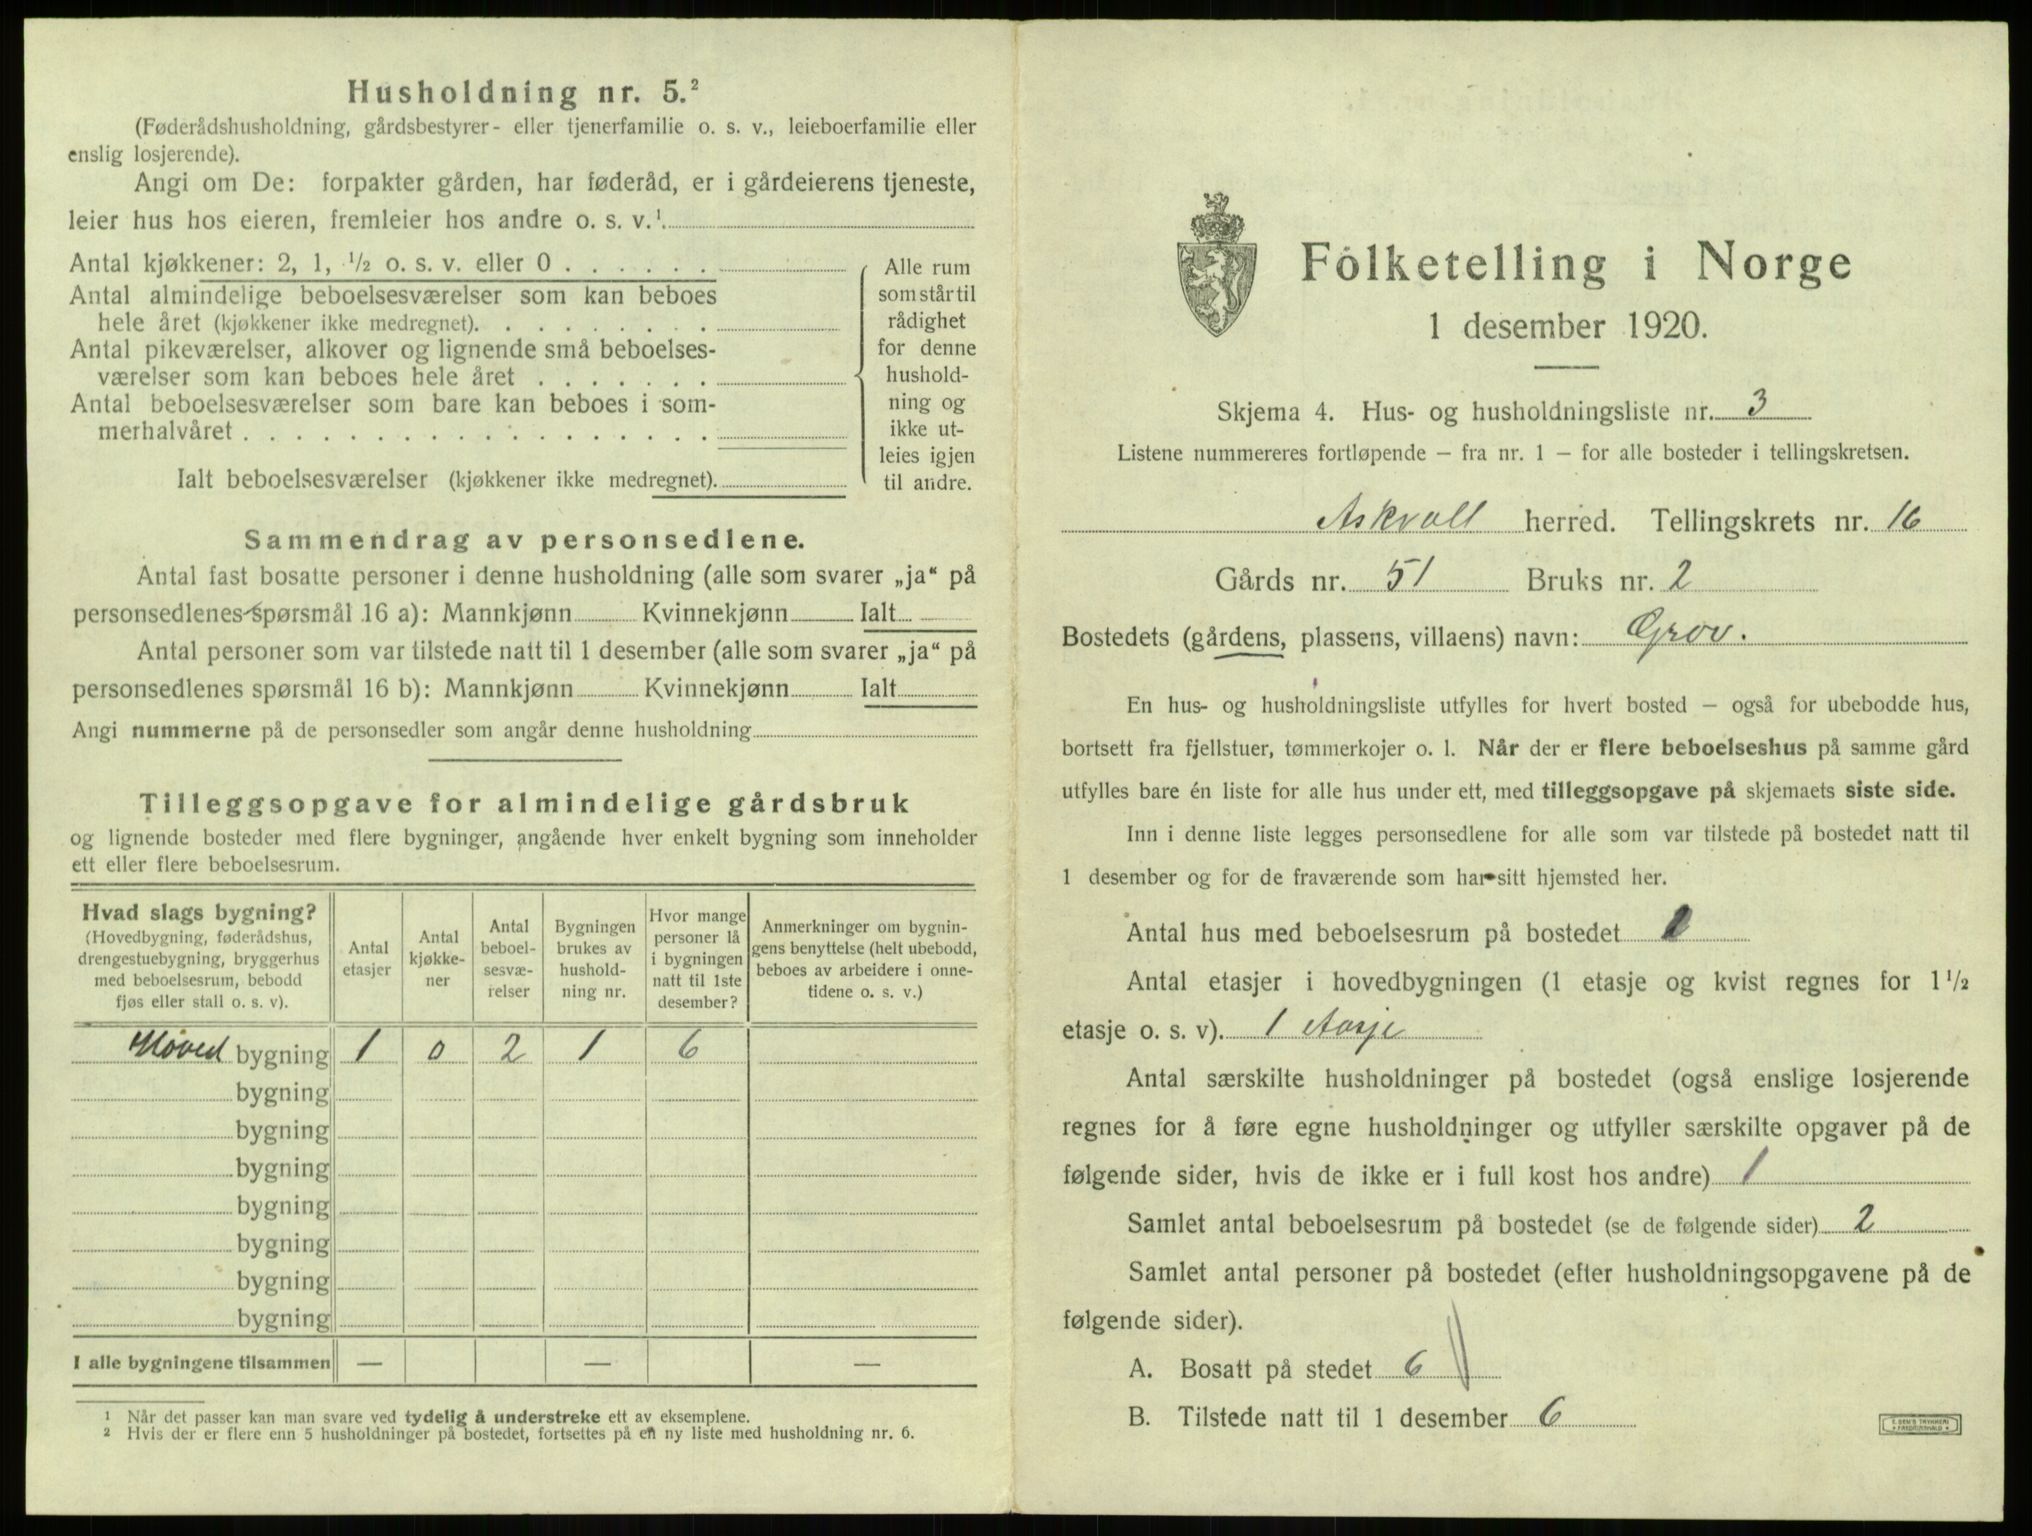 Husholdning nr. 5.²
(Føderådshusholdning, gårdsbestyrer- eller tjenerfamilie o. s. v., leieboerfamilie eller
enslig losjerende).
Angi om De: forpakter gården, har føderåd, er i gårdeierens tjeneste,
leier hus hos eieren, fremleier hos andre o. s. v.¹.
Antal kjøkkener: 2, 1, ½ o. s. v. eller 0
Antal almindelige beboelsesværelser som kan beboes
hele året (kjøkkener ikke medregnet).
Antal pikeværelser, alkover og lignende små beboelses-
værelser som kan beboes hele året
Antal beboelsesværelser som bare kan beboes i som-
merhalvåret
Ialt beboelsesværelser (kjøkkener ikke medregnet).
Alle rum
som står til
rådighet
for denne
hushold-
ning og
ikke ut-
leies igjen
til andre.
Sammendrag av personsedlene.
Antal fast bosatte personer i denne husholdning (alle som svarer „ja“ på
personsedlenes spørsmål 16 a): Mannkjønn Kvinnekjønn Ialt
Antal personer som var tilstede natt til 1 desember (alle som svarer „ja“ på
personsedlenes spørsmål 16 b): Mannkjønn Kvinnekjønn Ialt
Angi nummerne på de personsedler som angår denne husholdning
Tilleggsopgave for almindelige gårdsbruk
og lignende bosteder med flere bygninger, angående hver enkelt bygning som inneholder
ett eller flere beboelsesrum.
Hvad slags bygning?
(Hovedbygning, føderådshus,
drengestuebygning, bryggerhus
med beboelsesrum, bebodd
fjøs eller stall o. s. v).
Antal
etasjer
Antal
kjøkke-
ner
Antal
beboel-
sesvæ-
relser
Bygningen
brukes av
hushold-
ning nr.
Hvor mange
personer lå
i bygningen
natt til 1ste
desember?
Anmerkninger om bygnin-
gens benyttelse (helt ubebodd,
beboes av arbeidere i onne-
tidene o. s. v.)
Hoved bygning 1 0 2 1 6
bygning
bygning
bygning
bygning
bygning
bygning
bygning
I alle bygningene tilsammen — — —
¹ Når det passer kan man svare ved tydelig å understreke ett av eksemplene.
² Hvis der er flere enn 5 husholdninger på bostedet, fortsettes på en ny liste med husholdning nr. 6.
Folketelling i Norge
1 desember 1920.
Skjema 4. Hus- og husholdningsliste nr. 3
Listene nummereres fortløpende — fra nr. 1 — for alle bosteder i tellingskretsen.
Askvoll herred. Tellingskrets nr. 16
Gårds nr. 51 Bruks nr. 2
Bostedets (gårdens, plassens, villaens) navn: Grov.
En hus- og husholdningsliste utfylles for hvert bosted — også for ubebodde hus,
bortsett fra fjellstuer, tømmerkojer o. l. Når der er flere beboelseshus på samme gård
utfylles bare én liste for alle hus under ett, med tilleggsopgave på skjemaets siste side.
Inn i denne liste legges personsedlene for alle som var tilstede på bostedet natt til
1 desember og for de fraværende som har sitt hjemsted her.
Antal hus med beboelsesrum på bostedet
Antal etasjer i hovedbygningen (1 etasje og kvist regnes for 1½
etasje o. s. v). 1 Aasje
Antal særskilte husholdninger på bostedet (også enslige losjerende
regnes for å føre egne husholdninger og utfyller særskilte opgaver på de
følgende sider, hvis de ikke er i full kost hos andre) 1
Samlet antal beboelsesrum på bostedet (se de følgende sider) 2
Samlet antal personer på bostedet (efter husholdningsopgavene på de
følgende sider).
A. Bosatt på stedet 6
B. Tilstede natt til 1 desember 6